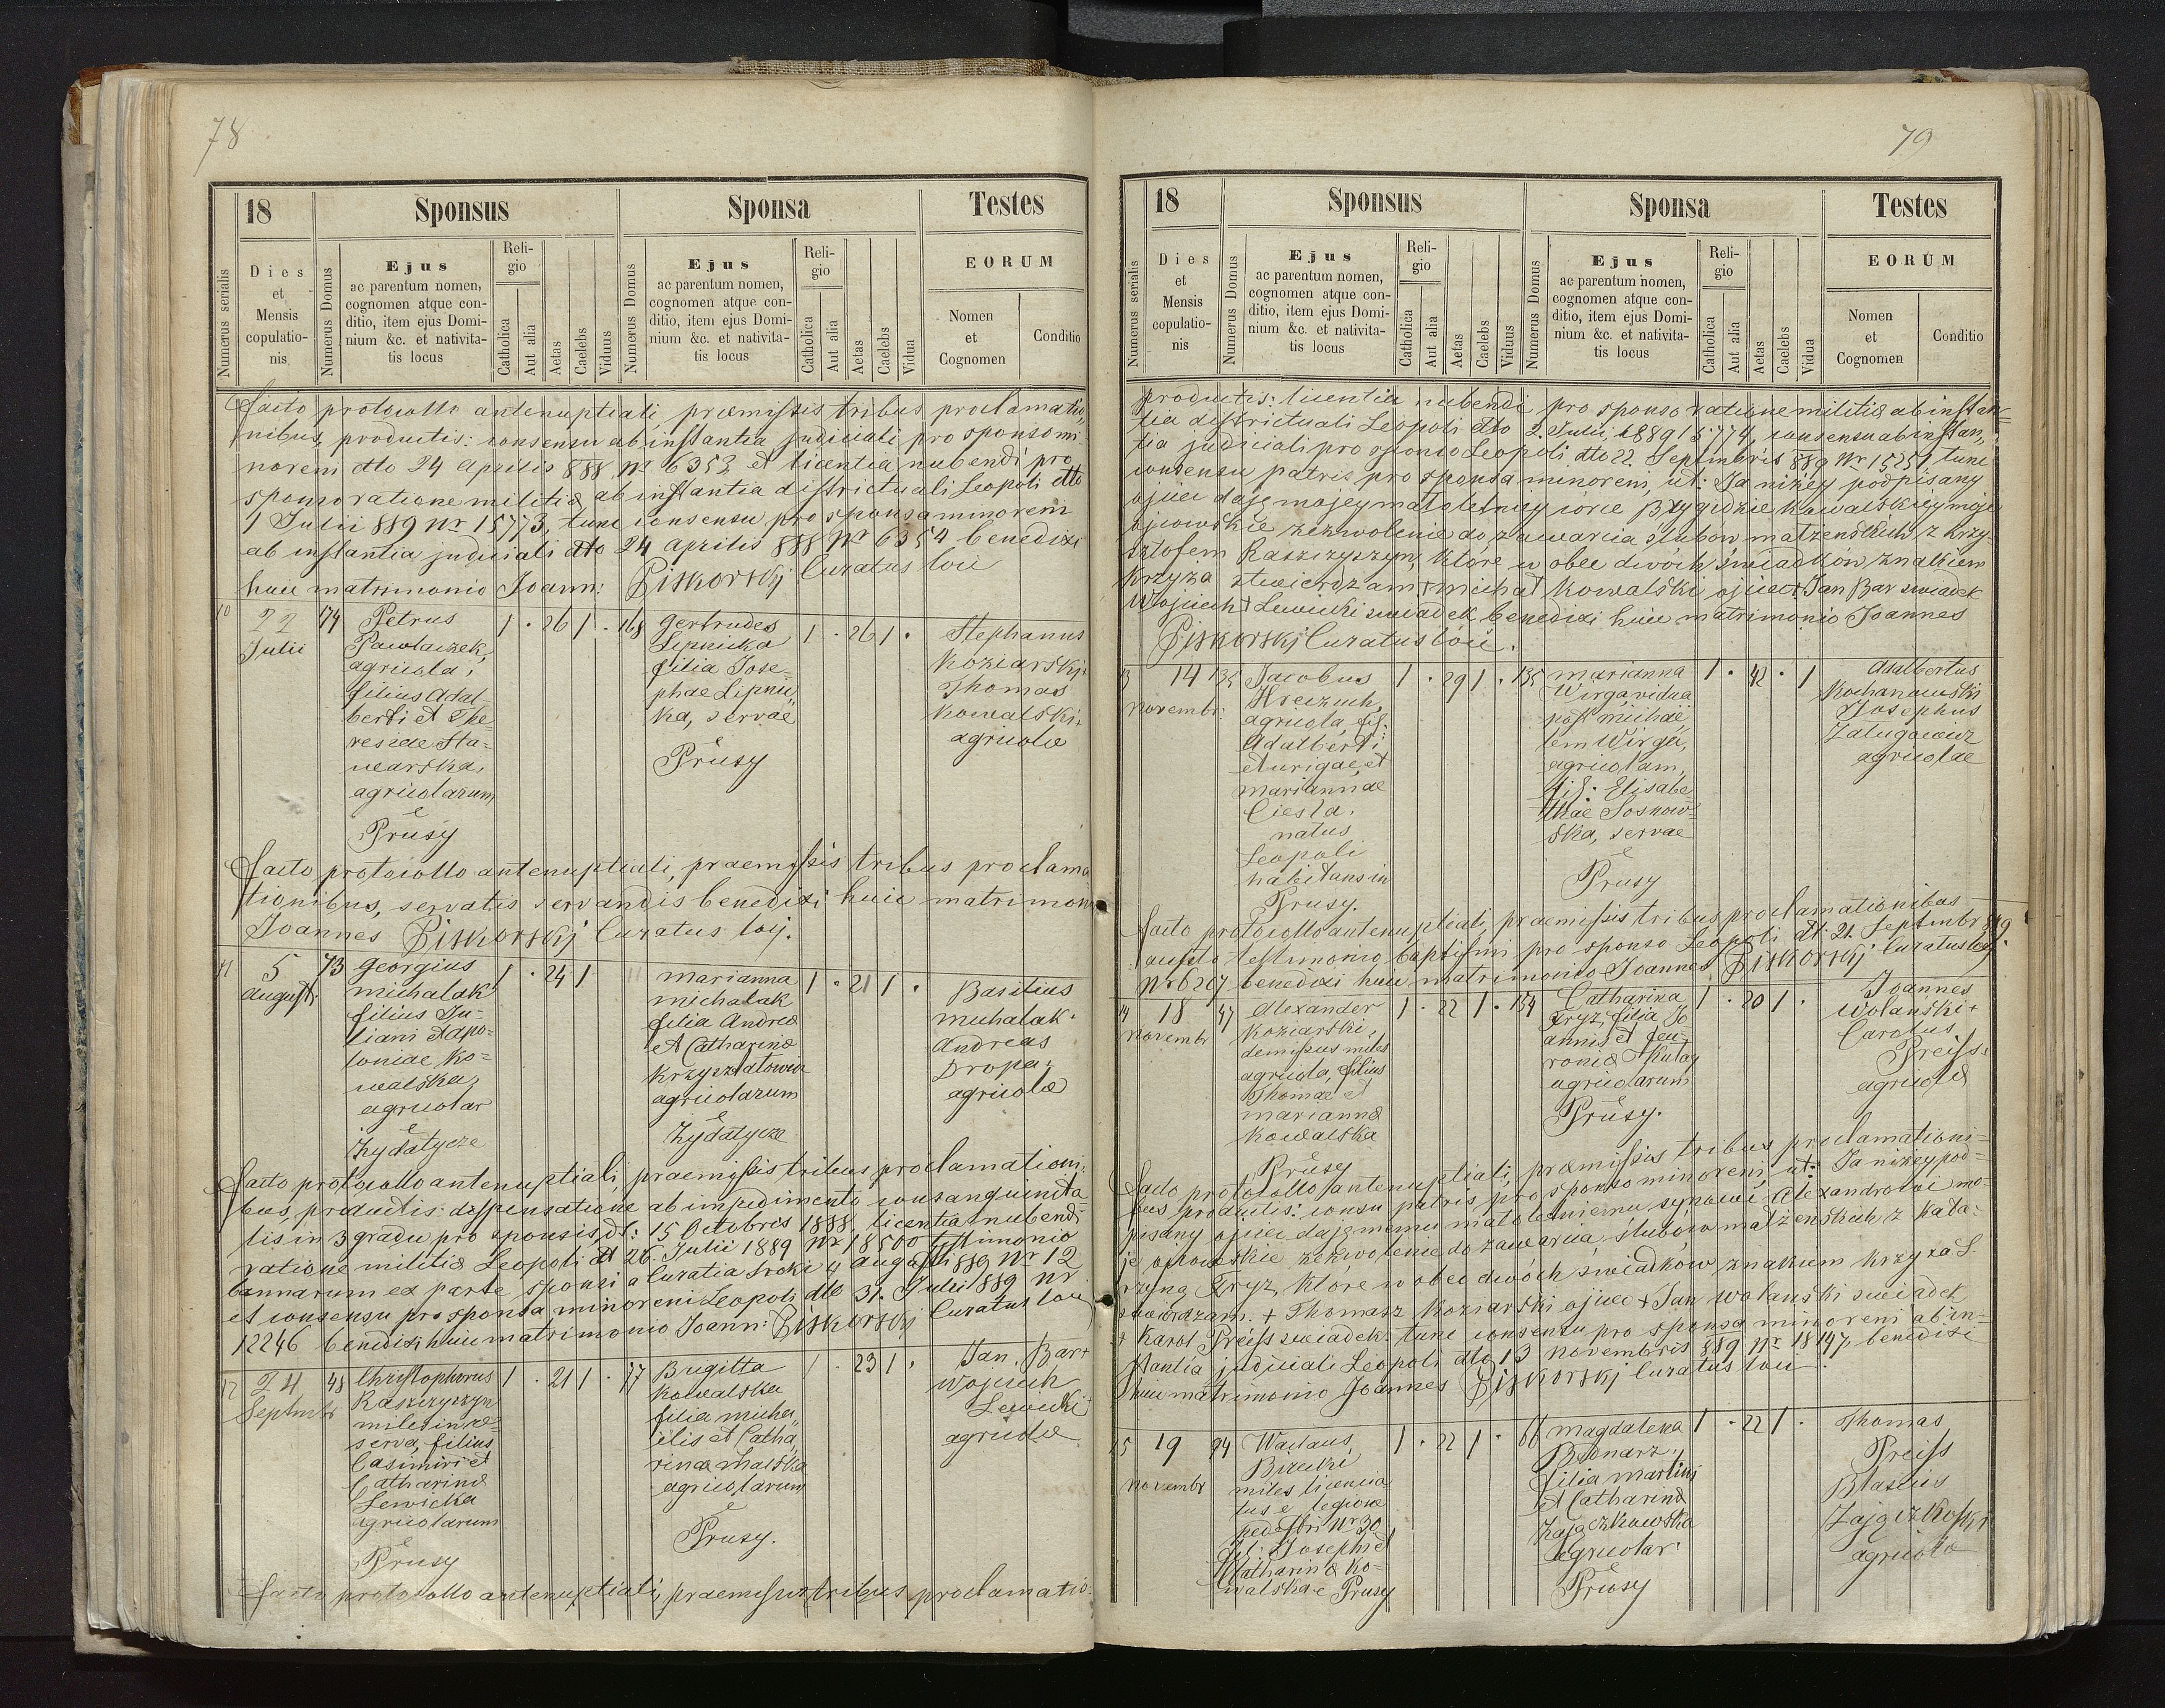 78
18
Sponsus
Sponsa
Testes
Numerus serialis
Dies
et
Mensis
copulatio-
nis
Numerus Domus
Ejus
ac parentum nomen,
cognomen atque con-
ditio, item ejus Domi-
nium &c. et nativita-
tis locus
Reli-
gio
Catholica
Aut alia
Aetas
Caelebs
Viduus
Numerus Domus
Ejus
ac parentum nomen,
cognomen atque con-
ditio, item ejus Domi-
nium &c. et nativita-
tis locus
Reli-
gio
Catholica
Aut alia
Aetas
Caelebs
Vidua
EORUM
Nomen
et
Cognomen
Conditio
Facto protocollo antenuptiali, præmissis tribus proclamatio„
nibus, productis: consensu ab instantia judiciali pro sponso mi„
noreni dto 24 Aprilis 888 Nr 6353 et licentia nubendi pro
sponso ratione militiæ ab instantia districtuali Leopoli dtto
1 Julii 889 Nr 15773, tunc consensu pro sponsa minoreni
ab instantia judiciali dto 24 Aprilis 888 Nr 6354 benedixi
huic matrimonio Joann: Piskorskj Curatus loci
10
22
Julii
174
Petrus
Pawlaczek,
agricola,
filius Adal
berti et The
resiae Sta=
warska,
agricolarum
e
Prusy
1 . 26 1 .
168
Gertrudes
Lipnicka
filia Jose=
phae Lipnic„
ka, servae
e
Prusy
1 . 26 1 .
Stephanus
Koziarskj+
Thomas
Kowalski+
agricolæ
Facto protocollo antenuptiali, praemissis tribus proclama
tionibus, servatis servandis benedixi huic matrimonio
Joannes Piskorskj Curatus loci.
11
5
August:
73
Georgius
Michalak
filius Ju-
liani et Apo-
loniae Ko=
walska,
agricolar
e
Żydatycze
1 . 24 1
Marianna
Michalak
filia Andreæ
et Catharinæ
agricolarum
e
Żydatycze
1 . 21 1 .
Basilius
Michalak+
Andreas
Dropa+
agricolæ
Facto protocollo antenuptiali, praemissis tribus proclamationi:
bus, productis: dispensatione ab impedimento consanguinita
tis in 3 gradu pro sponsis, dt: 15 Octobris 1888, licentia nubendi
ratione militiæ Leopoli dt 26. Julii 1889 Nr 18500 testimonio
bannarum ex parte sponsi a Curatia Sroki 4 Augusti 889 Nr 12
et consensu pro sponsa minoreni Leopoli dto 31. Julii 889 Nr
12246 benedixi huic matrimonio Joann: Piskorskj Curatus loci
12
24
Septmbr
48
Christophorus
Kaszczyszyn
miles in re=
serva, filius
Casimiri et
Catharinæ
Lewicka
agricolarum
e
Prusy
1 . 21 1 .
77
Brigitta
Kowalska
filia Micha„
elis et Catha„
rinæ Malska
agricolarum
e
Prusy.
1 . 23 1 .
Jan Bar+
Wojciech
Lewicki+
agricolæ
Facto protocollo antenuptiali, praemissis tribus proclamatio:
79
18
Sponsus
Sponsa
Testes
Numerus serialis
Dies
et
Mensis
copulatio-
nis
Numerus Domus
Ejus
ac parentum nomen,
cognomen atque con-
ditio, item ejus Domi-
nium &c. et nativita-
tis locus
Reli-
gio
Catholica
Aut alia
Aetas
Caelebs
Viduus
Numerus Domus
Ejus
ac parentum nomen,
cognomen atque con-
ditio, item ejus Domi-
nium &c. et nativita-
tis locus
Reli-
gio
Catholica
Aut alia
Aetas
Caelebs
Vidua
EORUM
Nomen
et
Cognomen
Conditio
productis: licentia nubendi pro sponso ratione militiæ ab instan=
tia districtuali Leopoli dto 2. Julii 1889 15774, consensu ab instan„
tia judiciali pro sponso Leopoli dto 22. Septmbris 889 Nr 15251 tunc
consensu patris pro sponsa minoreni, ut: Ja niżej podpisany
ojciec daję mojej małoletniej córce Brygidzie Kowalskiej moje
ojcowskie zezwolenie do zawarcia ślubów małżeńskich z Krzy-
sztofem Kaszczyszyn, które w obec dwóch świadków znakiem
krzyża stwierdzam + Michał Kowalski ojciec + Jan Bar swiadek
Wojciech + Lewicki swiadek benedixi huic matrimonio Joannes
Piskorskj Curatus loci.
13
14
Novembr:
135
Jacobus
agricola, fil:
Adalberti
et aurigae, et
Mariannae
Ciesla,
natus
Leopoli
habitans in
Prusy.
1 . 29 1 .
135
Marianna
Wirga, vidua
post Michae„
lem Wirga,
agricolam,
fil: Elisabe
thae Sosnow=
ska, servae
e
Prusy
1 . 42 . 1
Adalbertus
Kochanowski
Josephus
agricolae
Facto protocollo antenuptiali, praemissis tribus proclamationibus
testimonio baptismi pro sponso Leopoli dt: 21. Septmbr 889
Nr 6267 benedixi huic matrimonio Joannes Piskorskj Curatus loci.
14
18
Novembr
47
Alexander
Koziarski,
demissus miles
agricola, filius
Thomae et
Mariannæ
Kowalska
e
Prusy
1 . 22 1 .
154
Catharina
Fryz, filia Jo
annis et Feu-
roniæ
agricolarum
e
Prusy.
1 . 20 1 .
Joannes
Wolański+
Carolus
Preiss+
agricolæ
Facto protocollo antenuptiali, præmissis tribus proclamationi=
bus productis: consensu patris pro sponso minoreni, ut: Ja niżej pod=
pisany ojciec daję memu małoletniemu synowi Alexandrowi mo-
je ojcowskie zezwolenie do zawarcia ślubów małżeńskich z Kata-
rzyną Fryz, które w obec dwóch świadków znakiem krzyża S.
stwierdzam. + Thomasz Koziarski ojciec + Jan Wolański swiadek
+ Karol Preiss swiadek. tunc consensu pro sponsa minoreni ab in=
stantia judiciali Leopoli dto 13 Novembris 889 Nr 18147, benedixi
huic matrimonio Joannes Piskorskj Curatus loci.
15
19
Novembr
94
Birecki
miles licencia
tus e legione
pedestri Nr 30
fil: Josephi et
Catharinæ Ko=
walska e Prusy
1 . 22 1 .
66
Magdalena
Bednarz,
filia Martini
et Catharinæ
Zajączkowska
agricolar:
e
Prusy
1 . 22 1 .
Thomas
Preiss
Blasius
agricolæ